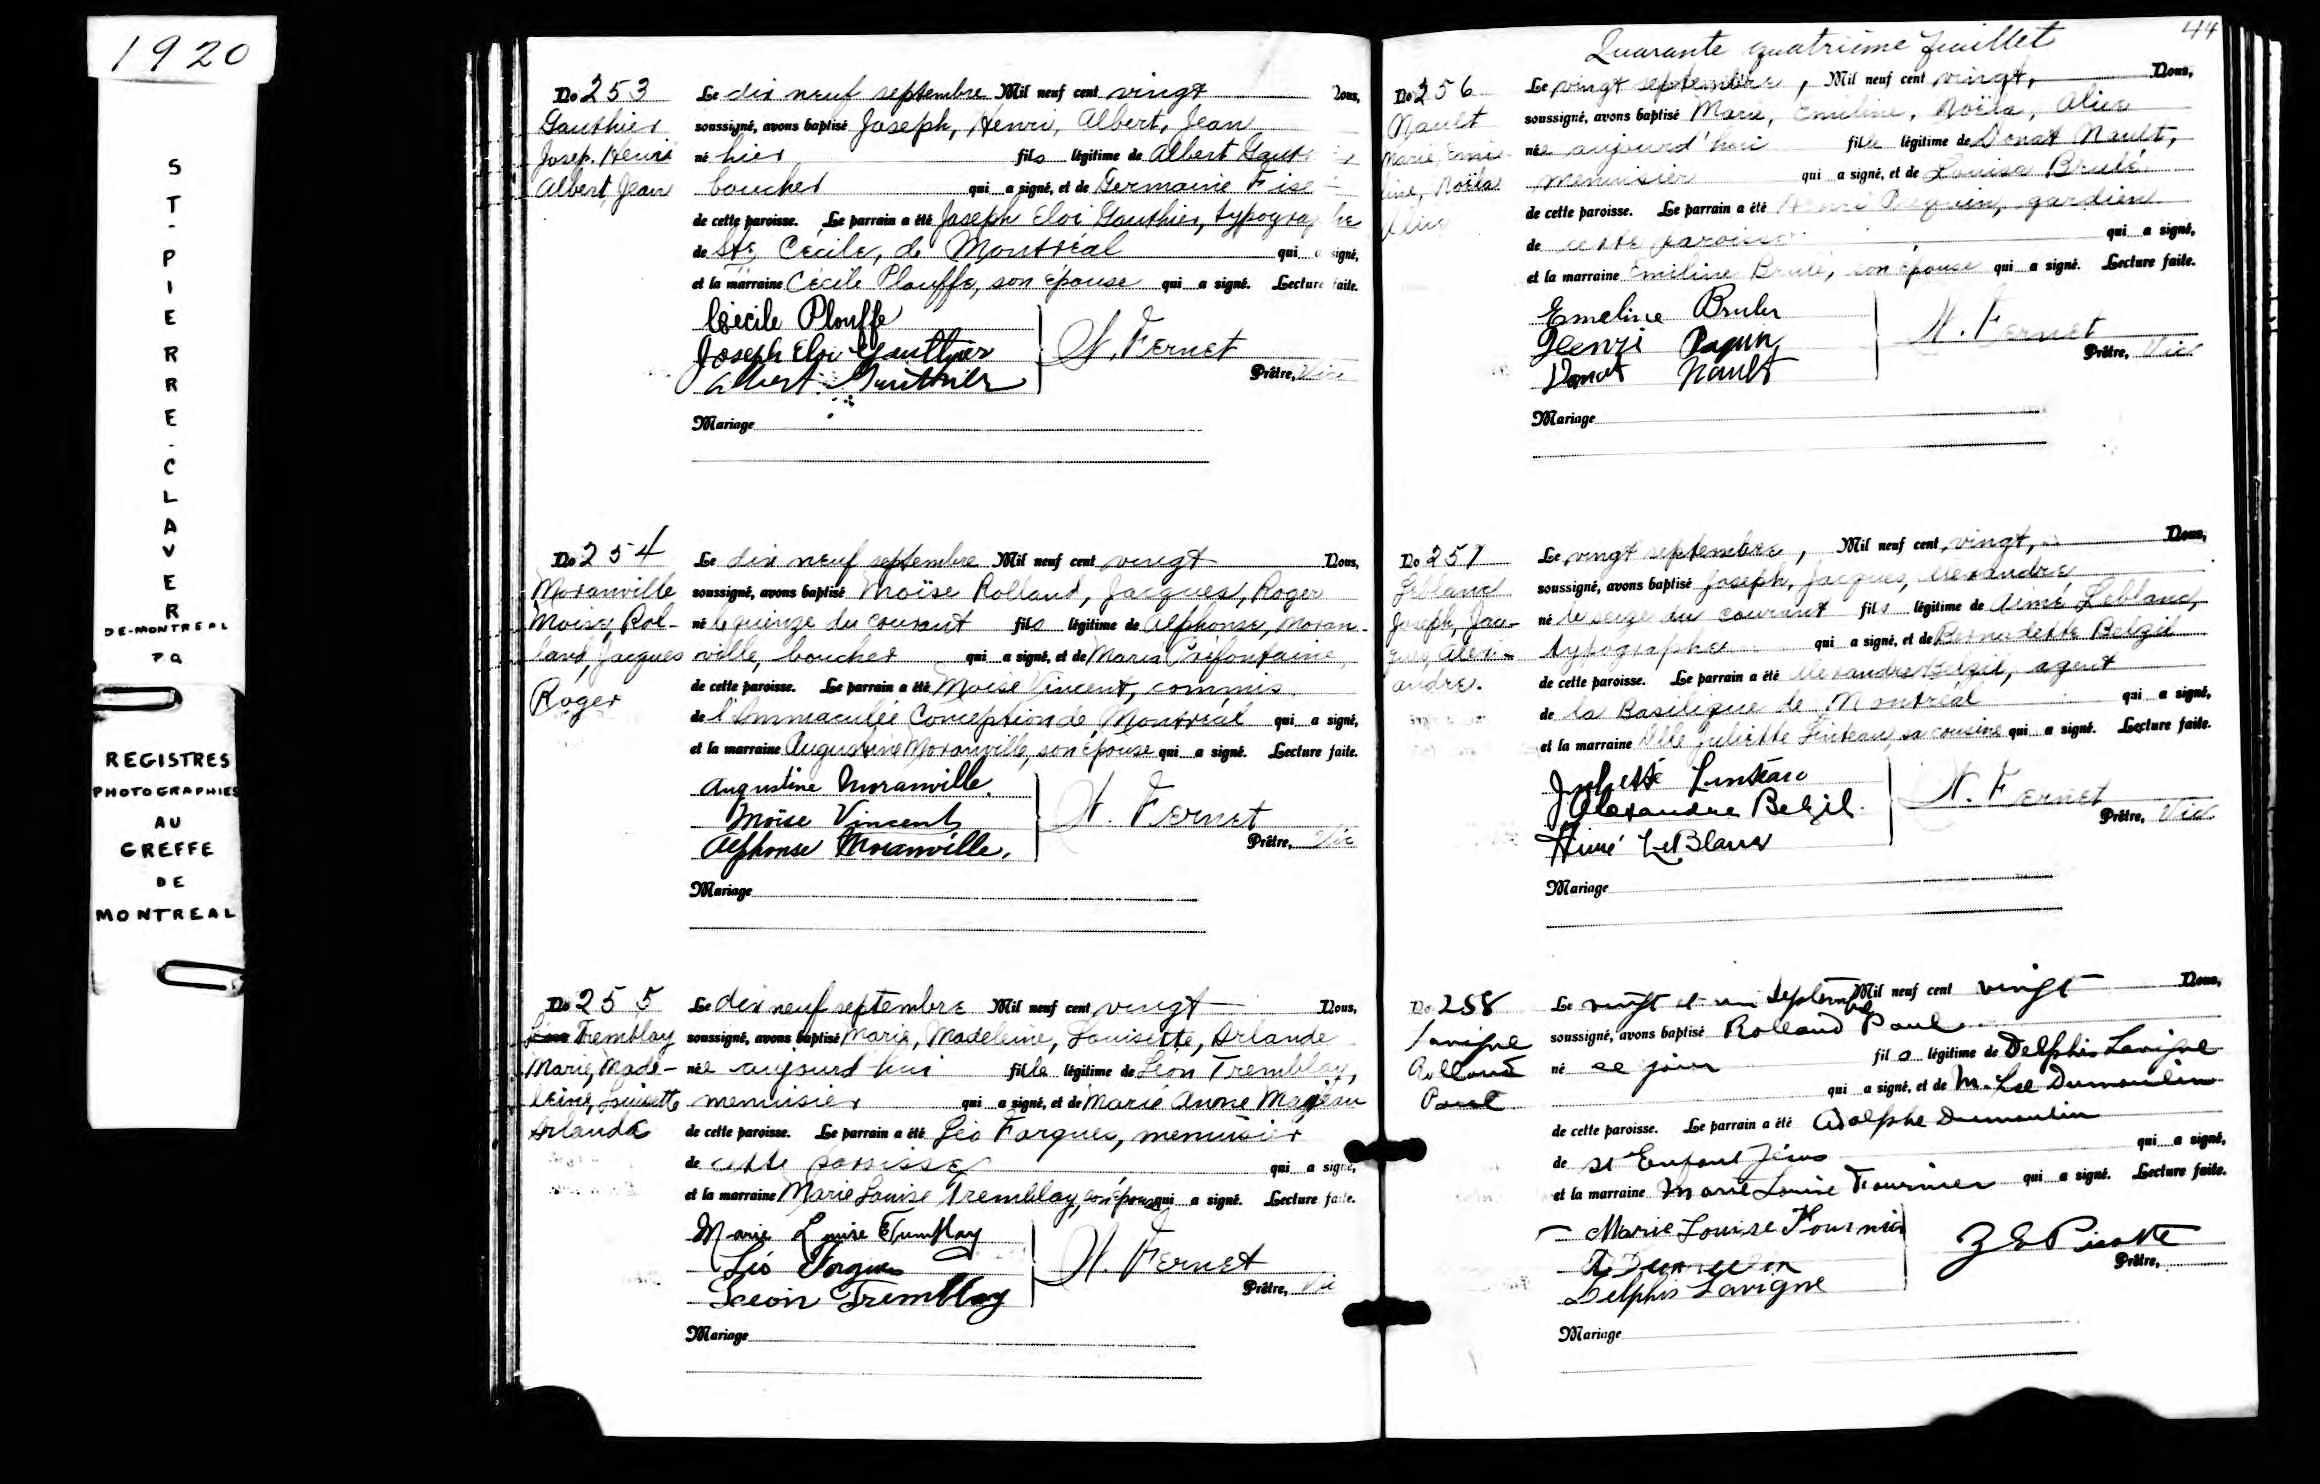 1920
ST-PIERRE-CLAVER
DE-MONTREAL
PQ
REGISTRES
PHOTOGRAPHIES
AU
GREFFE
DE
MONTREAL
No 253
Gauthier
Josep. Henri
Albert, Jean
Le dix neuf septembre Mil neuf cent vingt Nous,
soussigné, avons baptisé Joseph, Henri, Albert, Jean
né hier fils légitime de Albert
boucher qui a signé, et de Germaine
de cette paroisse. Le parrain a été Joseph Eloi Gauthier, typographe
de Ste Cécile, de Montréal qui a signé,
et la marraine Cécile Plouffe, son épouse qui a signé. Lecture faite.
Cécile Plouffe
Joseph Eloi Gauthier
Albert Gauthier
N. Fernet
Prêtre, Vic
Mariage
No 254
Moranville
Moise, Rol-
land, Jacques
Roger
Le dix neuf septembre Mil neuf cent vingt Nous,
soussigné, avons baptisé Moïse Rolland, Jacques, Roger
né le quinze du courant fils légitime de Alphonse, Moran-
ville, boucher qui a signé, et de Maria Préfontaine
de cette paroisse. Le parrain a été Moise Vincent, commis
de l'Immaculée Conception de Montréal qui a signé,
et la marraine Augustine Moranville, son épouse qui a signé. Lecture faite.
Augustine Moranville.
Moïse Vincent
Alphonse Moranville.
N. Fernet
Prêtre, Vic
Mariage
No 255
Tremblay
Marie, Made-
leine, Louisette
Arlande
Le dix neuf septembre Mil neuf cent vingt Nous,
soussigné, avons baptisé Marie, Madeleine, Louisette, Arlande
née aujourd'hui fille légitime de Léon Tremblay,
menuisier qui a signé, et de Marie Anne
de cette paroisse. Le parrain a été Léo Forgues, menuisier
de cette paroisse qui a signé,
et la marraine Marie Louise Tremblay, son épouse qui a signé. Lecture faite.
Marie Louise Tremblay
Léo Forgues
Léon Tremblay
N. Fernet
Prêtre, Vic
Mariage
Quarante quatrième feuillet
44
No 256
Nault
Marie, Eme-
line, Noëla
Alice
Le vingt septembre, Mil neuf cent vingt, Nous,
soussigné, avons baptisé Marie, Emeline, Noëla, Alice
née aujourd'hui fille légitime de Donat Nault,
menuisier qui a signé, et de Louisa Brulé
de cette paroisse. Le parrain a été Henri gardien
de cette paroisse qui a signé,
et la marraine Emeline Brulé, son épouse qui a signé. Lecture faite.
Emeline Bruler
Henri Paquin
Donat Nault
N. Fernet
Prêtre, Vic
Mariage
No 257
Leblanc
Joseph, Jac-
ques, Alex-
andre.
Le vingt septembre, Mil neuf cent vingt, Nous,
soussigné, avons baptisé Joseph, Jacques, Alexandre
né le seize du courant fils légitime de Aimé Leblanc,
typographe qui a signé, et de Bernadette Belzil
de cette paroisse. Le parrain a été Alexandre Belzil, agent
de la Basilique de Montréal qui a signé,
et la marraine Dlle Juliette Linteau, sa cousine qui a signé. Lecture faite.
Juliette Linteau
Alexandre Belzil.
Aimé LeBlanc
N. Fernet
Prêtre, Vic
Mariage
No 258
Lavigne
Rolland
Paul
Le vingt et un septembre Mil neuf cent vingt Nous,
soussigné, avons baptisé Rolland Paul
né ce jour fils légitime de Delphis Lavigne
qui a signé, et de M. Lse Dumoulin
de cette paroisse. Le parrain a été Adolphe Dumoulin
de St Enfant Jésus qui a signé,
et la marraine Marie Louise Fournier qui a signé. Lecture faite.
Marie Louise Fournier
A Dumoulin
Delphis Lavigne
Z E Picotte
Prêtre,
Mariage